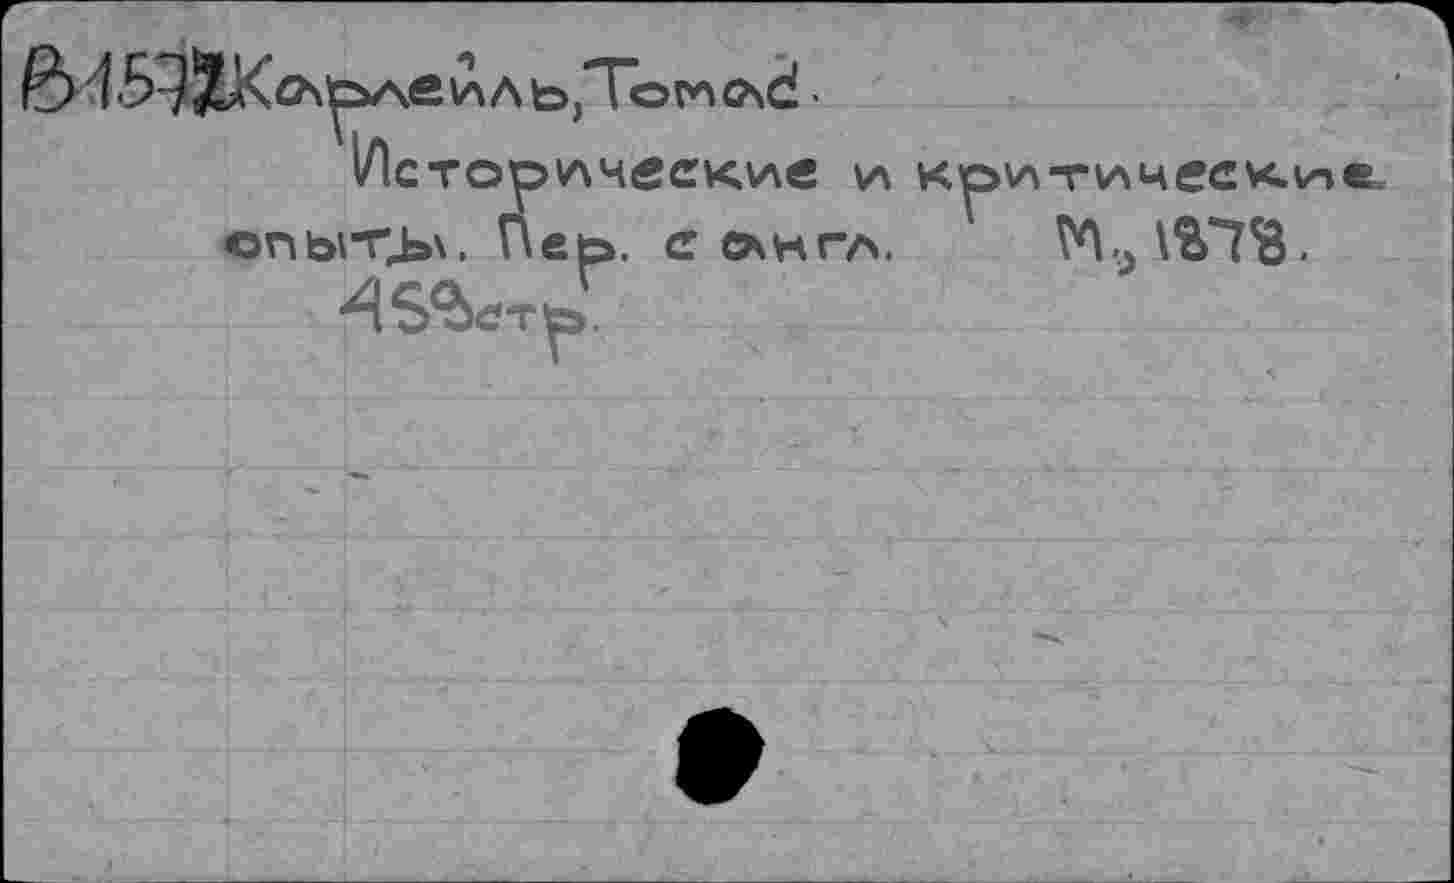 Карлейль, Томас.
Исторические и критические
опыты. Пер. с англ. М., 1878.
стр.